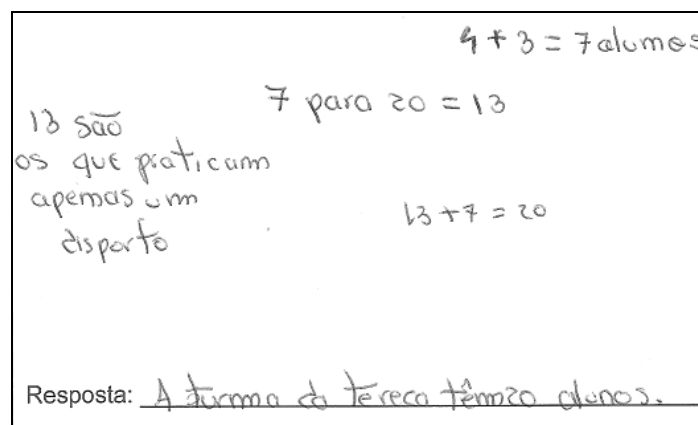 4 + 3 = 7 alunos
7 para 20 = 13
13 são
os que praticam
apenas um
disporto
13 + 7 = 20
Resposta: A turma da tereca têm 20 alunos.